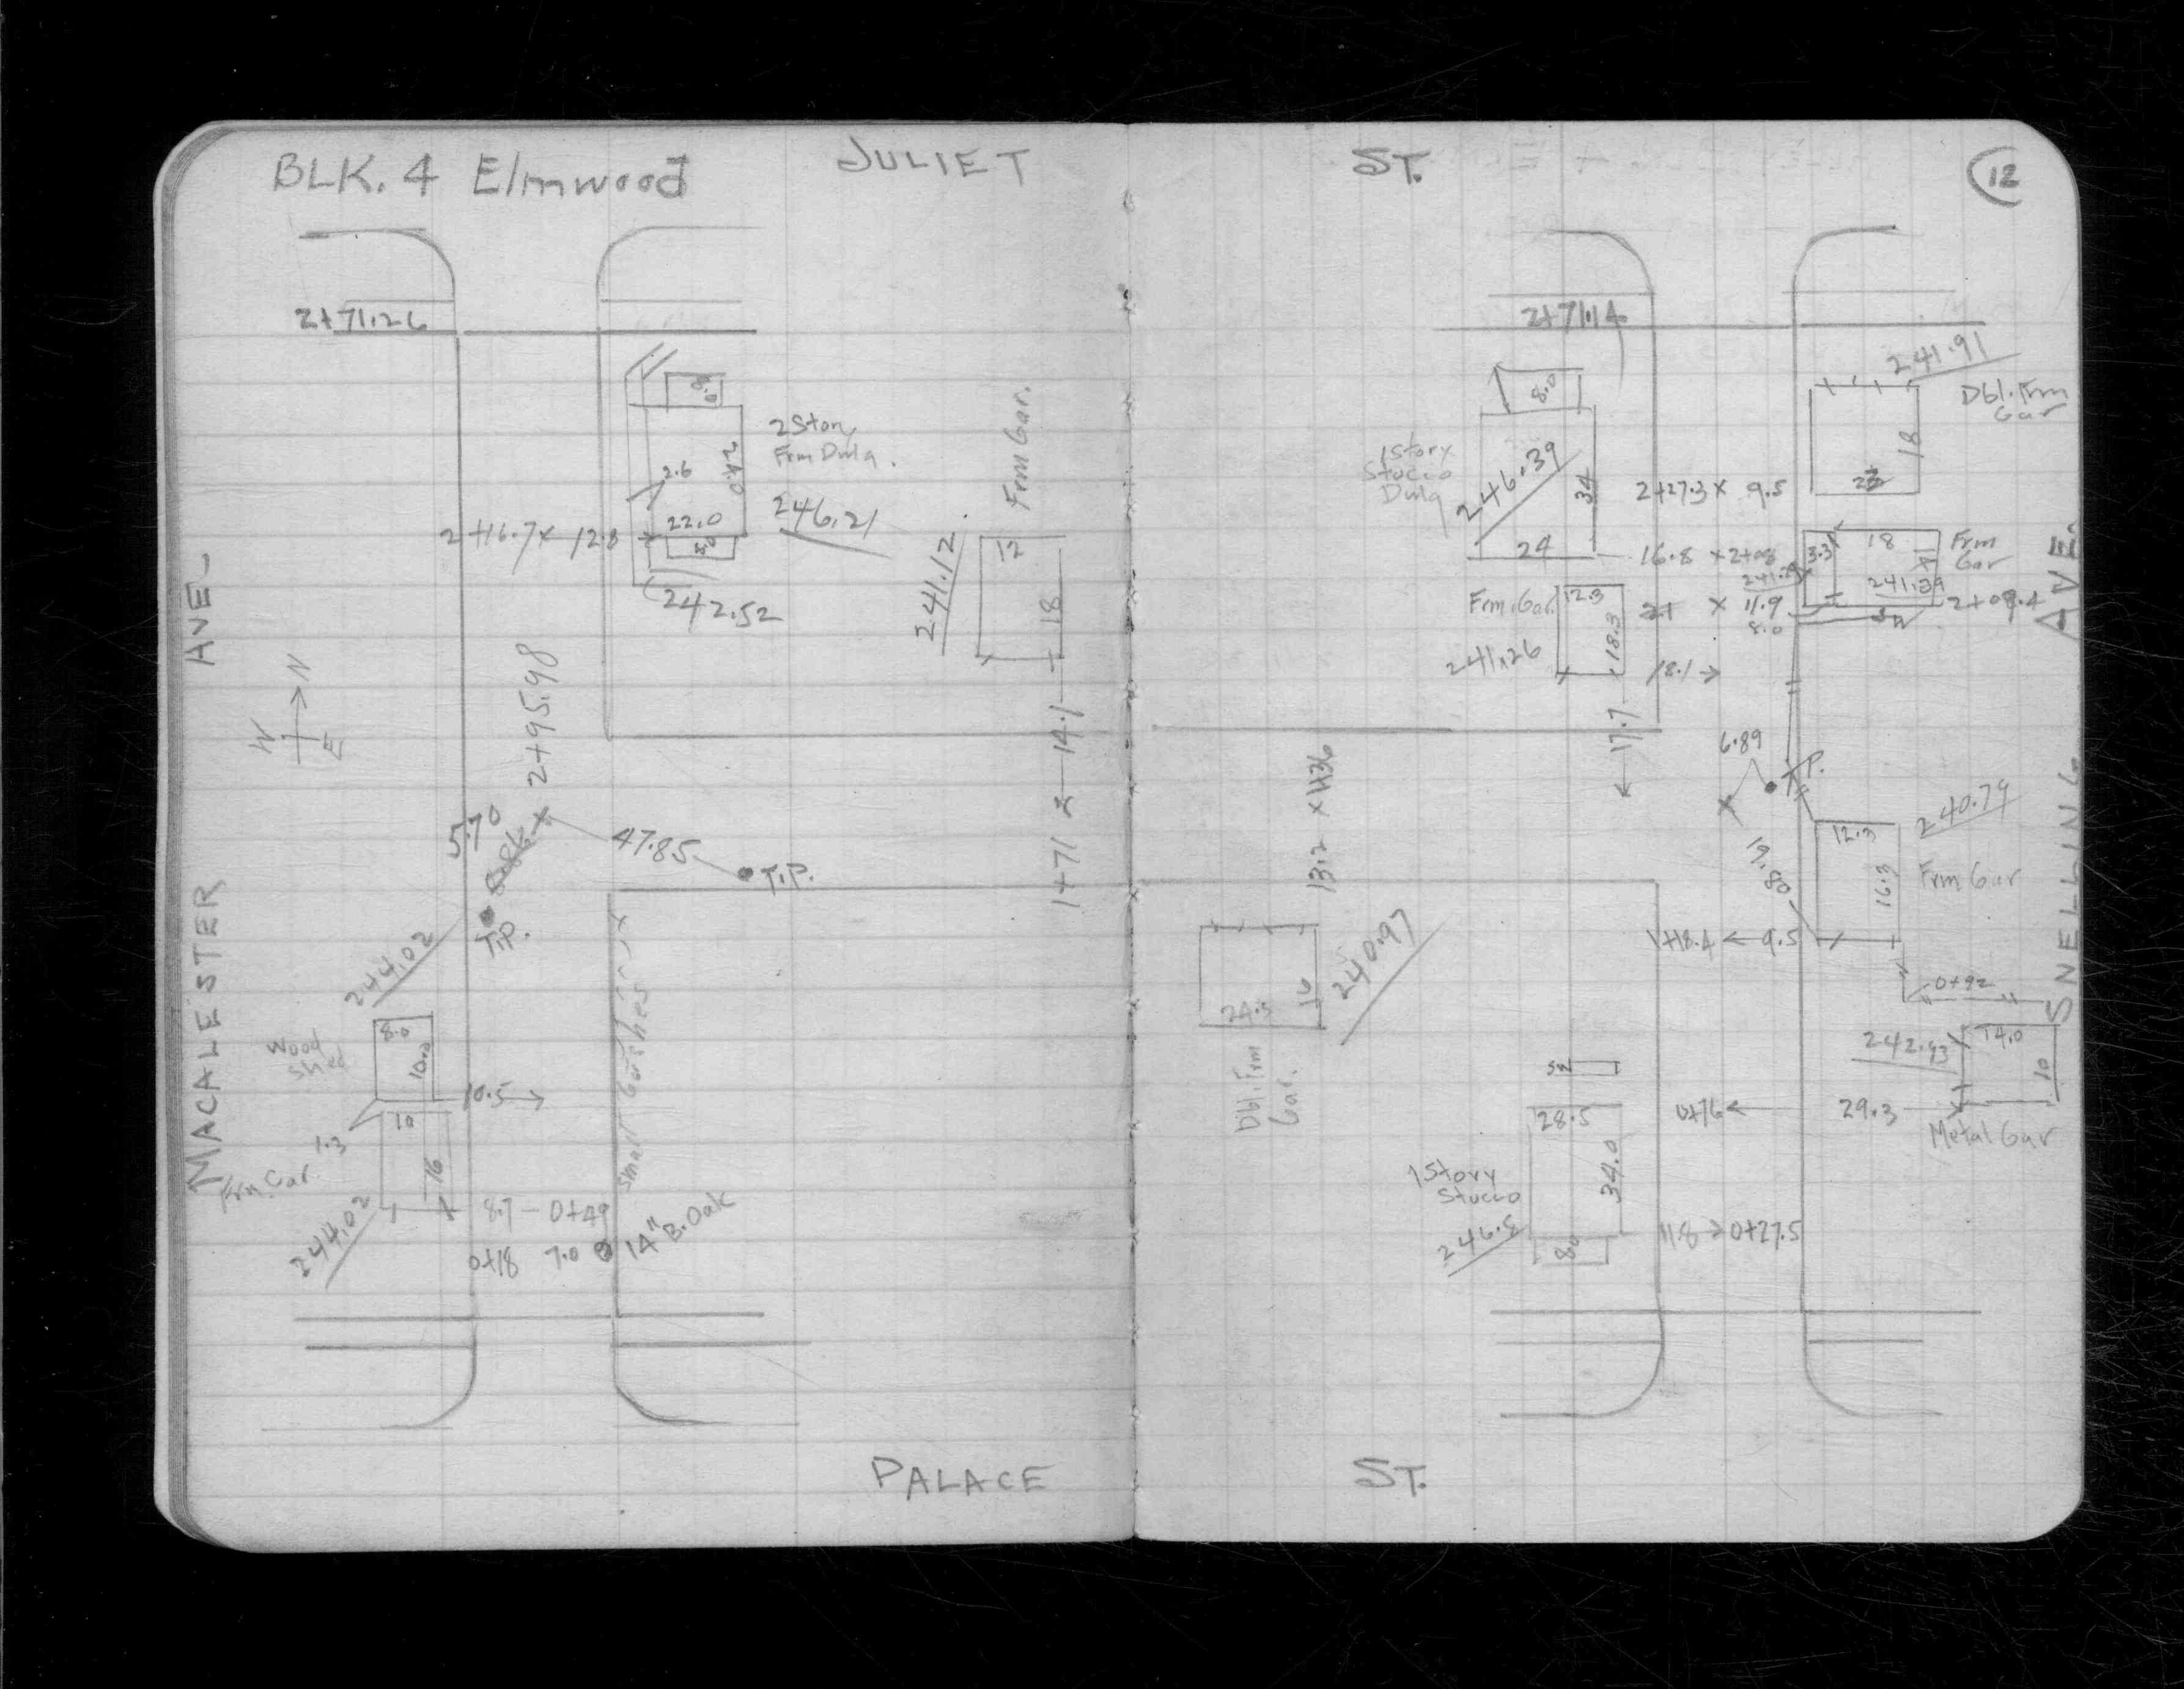 BLK. 4 Elmwood
JULIET
ST.
12
2+71.26
2+71.14
241.91
Dbl. Frm
Gar
18
8.0
24.0
2.6
22.0
8.0
2 Story
Frm Dwlg.
246.21
2+16.7 x 12.8
242.52
Frm Gar.
12
18
241.12
8.0
1 Story
Stucco
Dwlg
246.39
34
24
2+27.3 x 9.5
16.8 x 2+08
3.3
18
Frm
Gar
241.39
11.9
8.0
Frm. Gar.
12.3
18.3
241.26
18.1
17.7
AVE.
AVE.
N
W
E
2+95.98
5.70
47.85
T.P.
T.P.
1+71
14.1
13.2 x 1+36
6.89
T.P.
240.79
12.3
16.3
Frm Gar
1+18.4
9.5
0+92
MACALESTER
SNELLING
244.02
Wood
Shed
8.0
10.0
10.5
10
16
1.3
Frm. Gar.
244.02
8.7 - 0+49
0+18 7.0
14" B. Oak
small bushes
24.5
240.97
Dbl. Frm
Gar.
SW
28.5
34.0
8.0
1 Story
Stucco
0+76
29.3
242.93
14.0
10
Metal Gar
11.8
0+27.5
PALACE
ST.